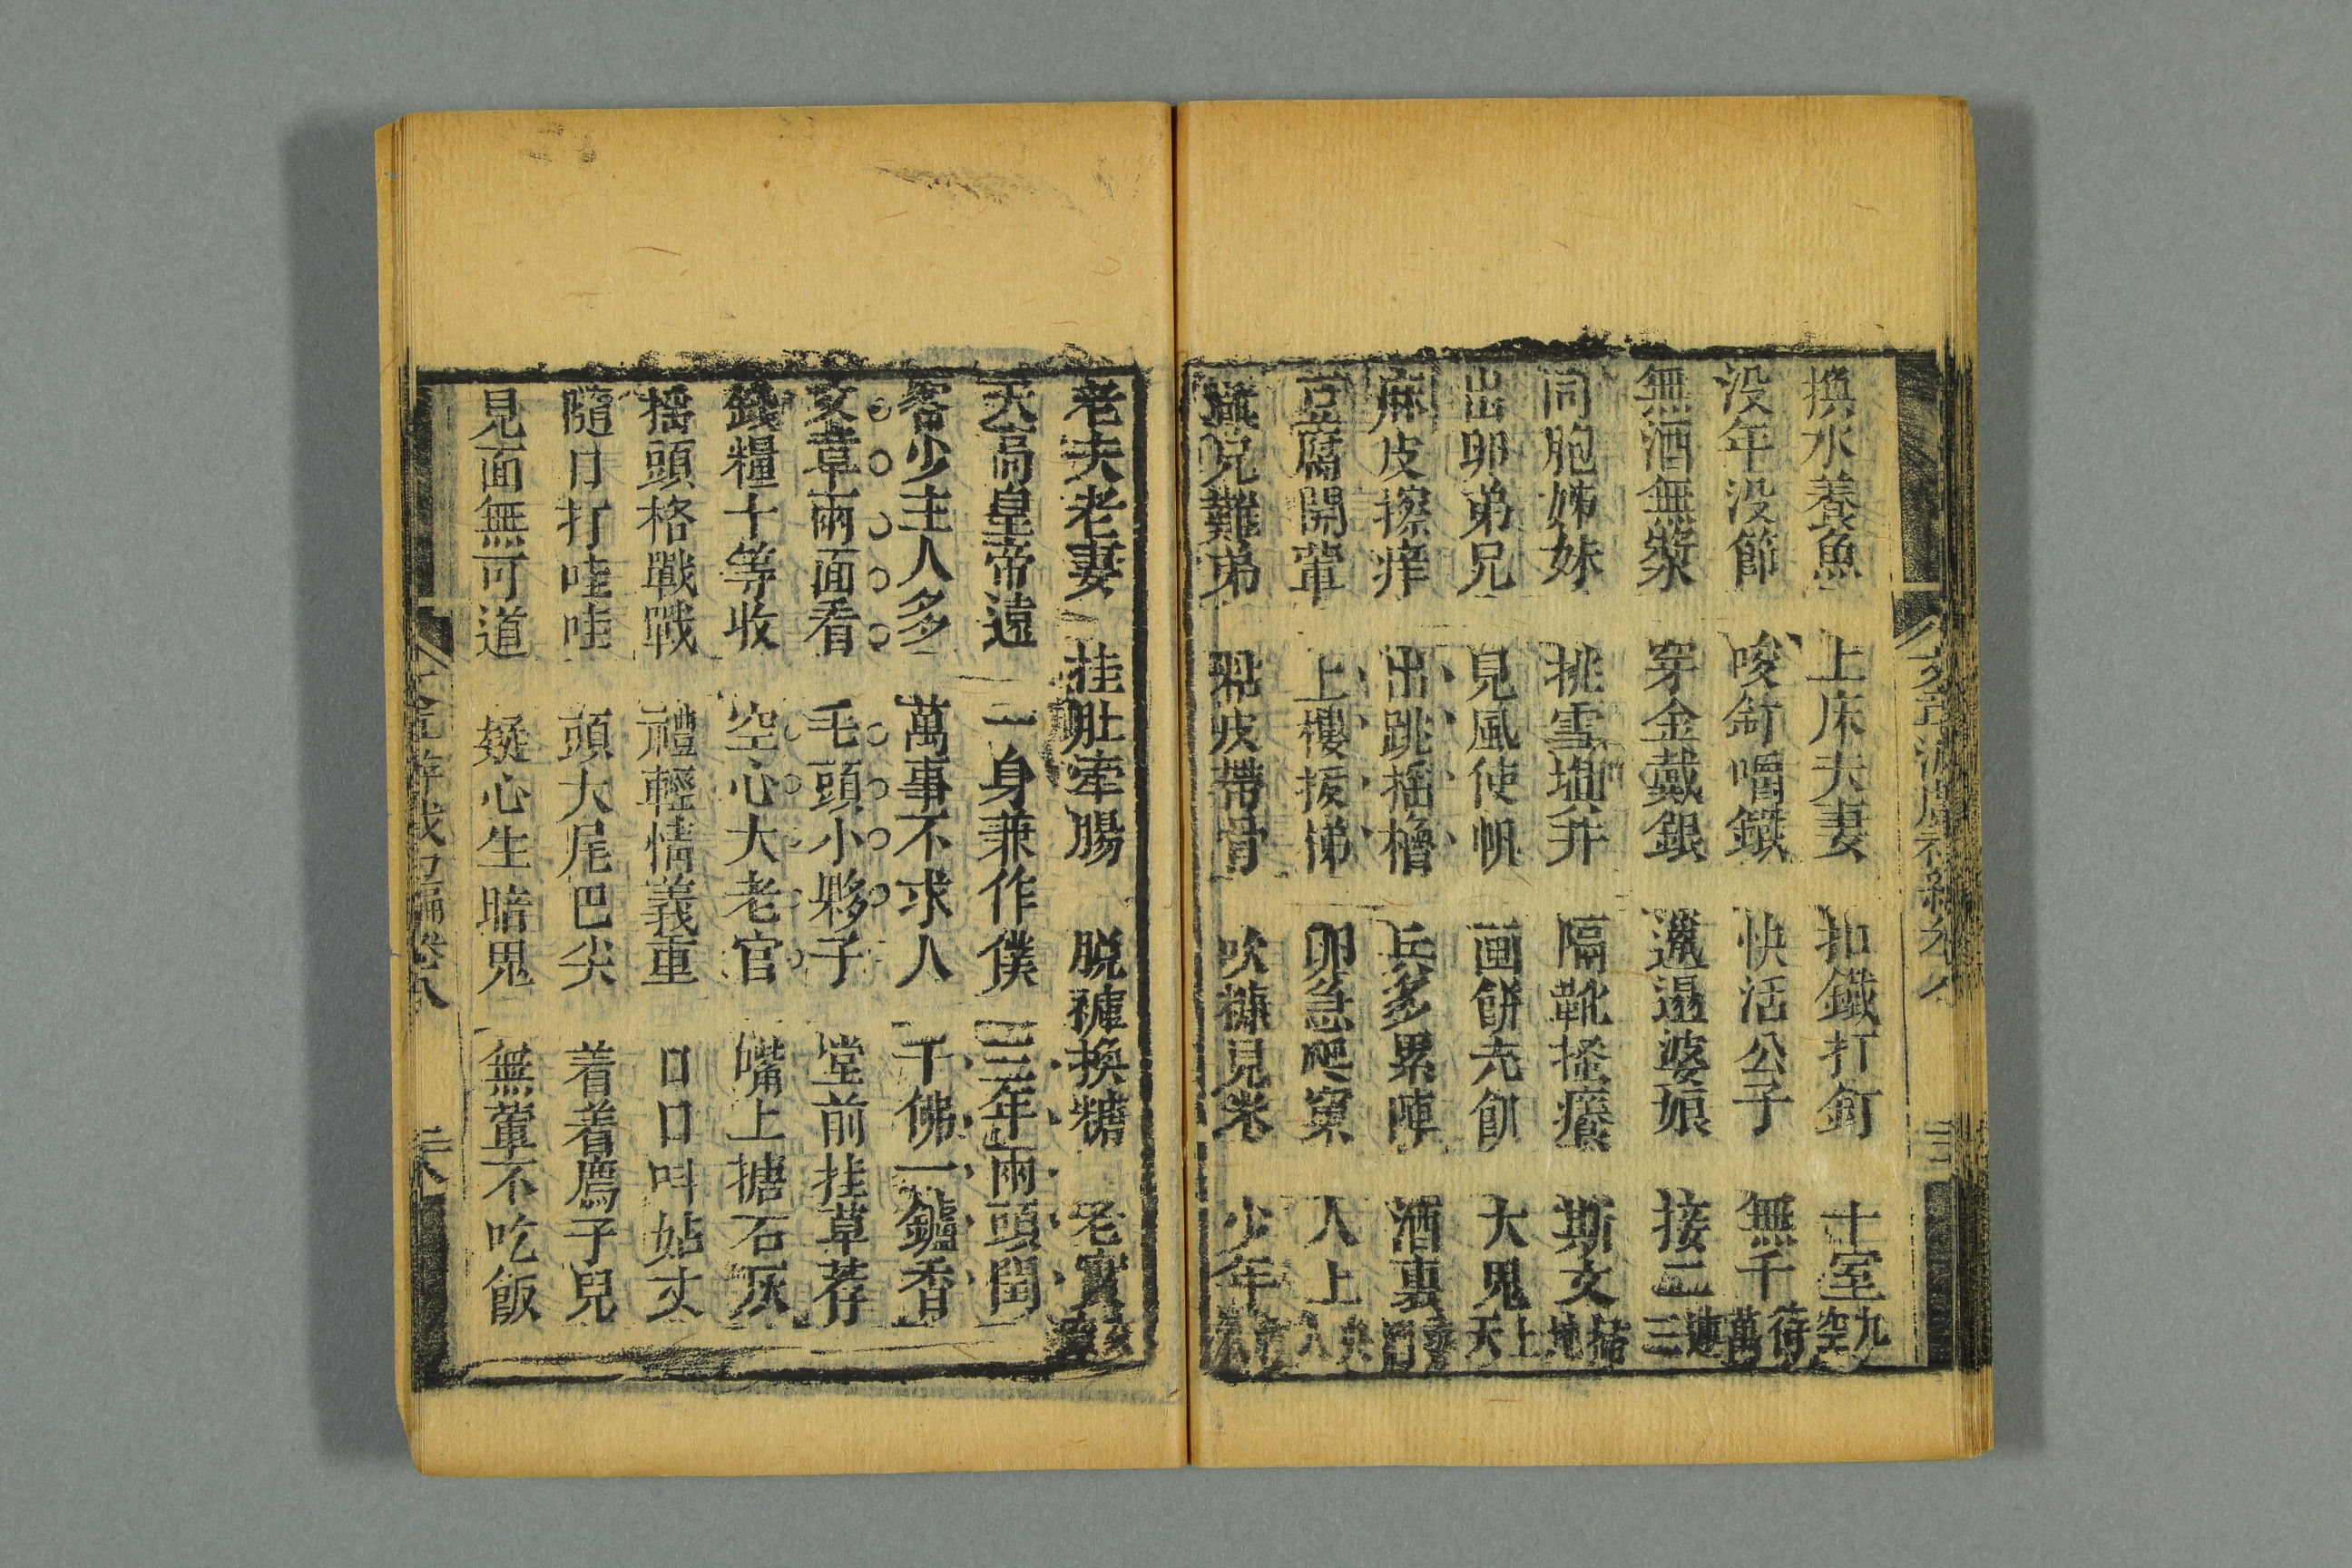 換水養魚 上床夫妻 扣鐵打釘 十室九空
没年没節 唆釘嚼鐵 快活公子 無千待萬
無酒無漿 穿金戴銀 邋遢婆娘 接二連三
同胞姊妹 挑雪塡井 隔靴搔癢 斯文掃地
出卵弟兄 見風使帆 画餅充飢 大鬼上天
麻皮擦痒 出跳摇櫓 兵多累陣 酒裏
豆腐開葷 上樓拔梯 卵急爬窠 人上央人
難兄難弟 粘皮帶骨 吹糠見米 少年
老夫老妻 挂肚牽腸 脱褲換糖 老實
天高皇帝遠 一身兼作僕 三年兩頭閏
客少主人多 萬事不求人 千佛一鑪香
文章兩面看 毛頭小夥子 堂前挂草荐
錢糧十等收 空心大老官 嘴上搪石灰
摇頭格戰戰 禮輕情義重 口口呌姑丈
隨口打哇哇 頭大尾巴尖 着着鷹子兒
見面無可道 疑心生暗鬼 無葷不吃飯